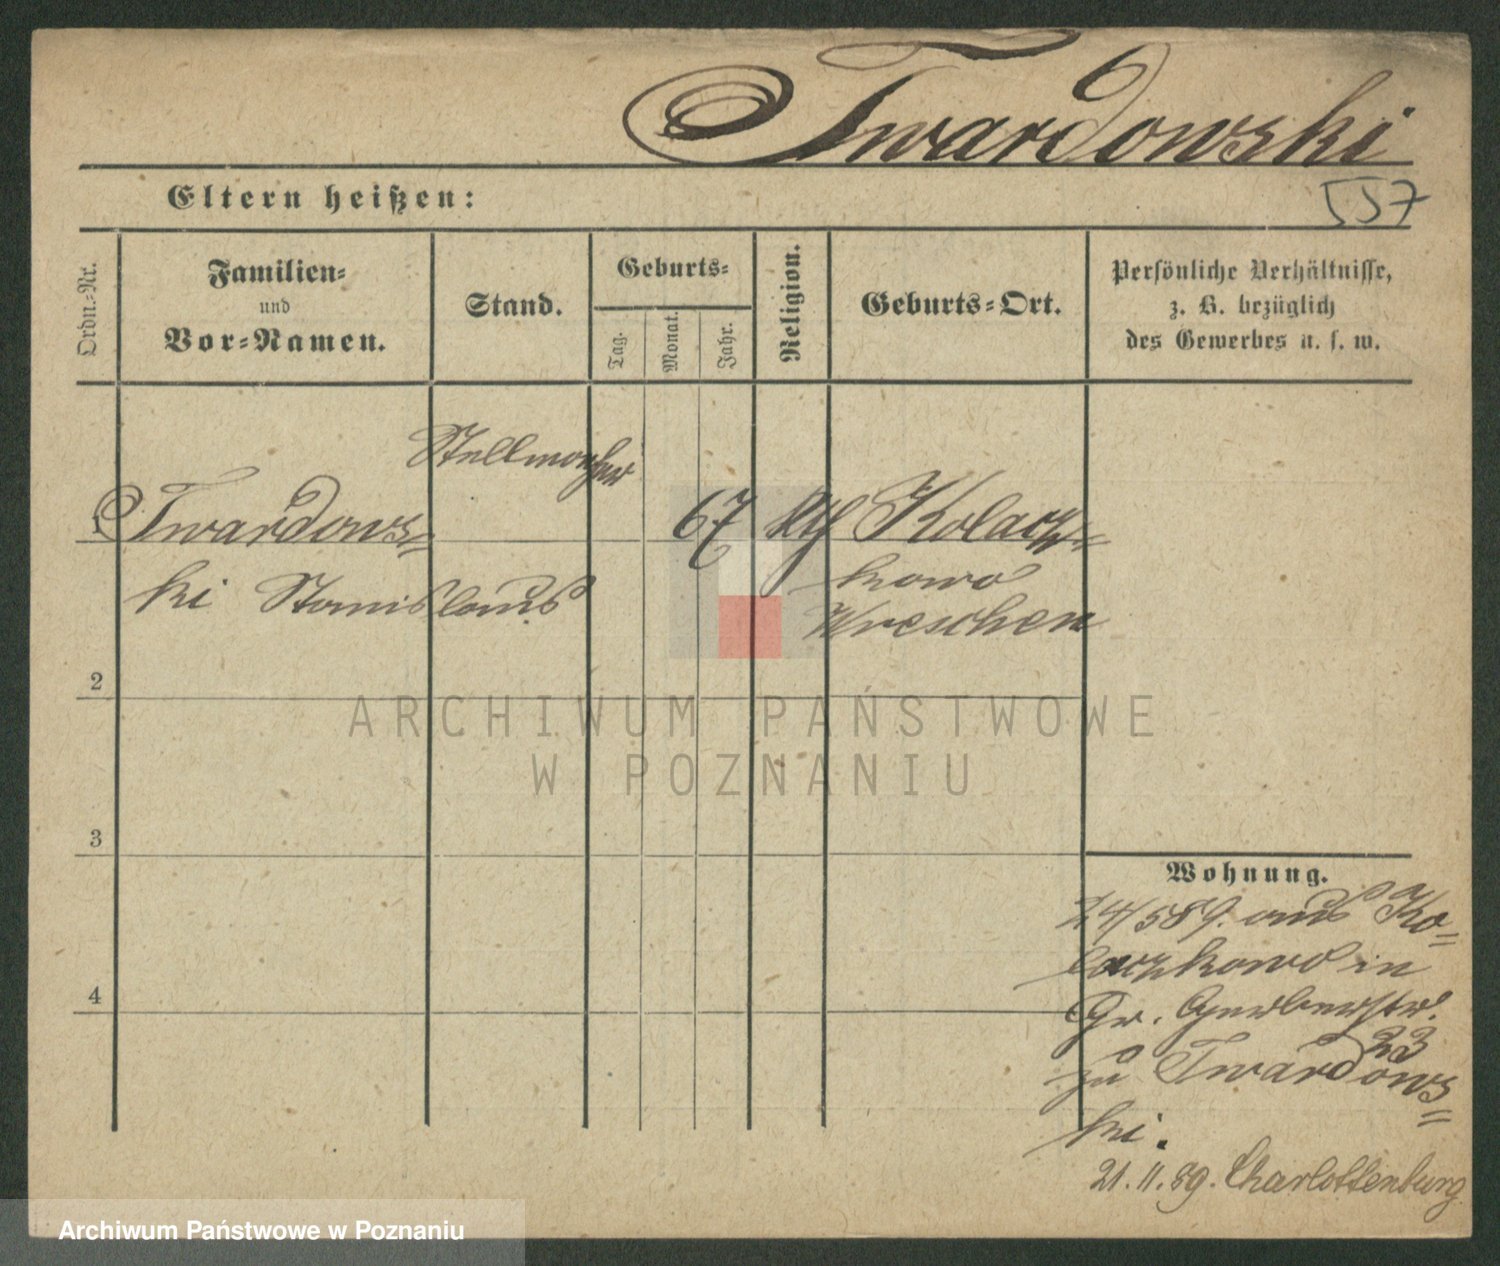 Twardowski
Eltern heißen:
557
Ordn.-Nr.
Familien-
und
Vor-Namen.
Stand.
Geburts-
Tag.
Monat.
Jahr.
Religion.
Geburts-Ort.
Persönliche Verhältnisse,
z. B. bezüglich
des Gewerbes u. s. w.
Stellmacher
1 Twardows- 67 kth Kolacz-
ki Stanislaus kowo
Wreschen
2
ARCHIWUM PAŃSTWOWE
W POZNANIU
3
Wohnung.
24/5 89. aus Ko-
laczkowo in
4
Gr. Gerberstr.
23
zu Twardows-
ki.
21.11.89. Charlottenburg
Archiwum Państwowe w Poznaniu